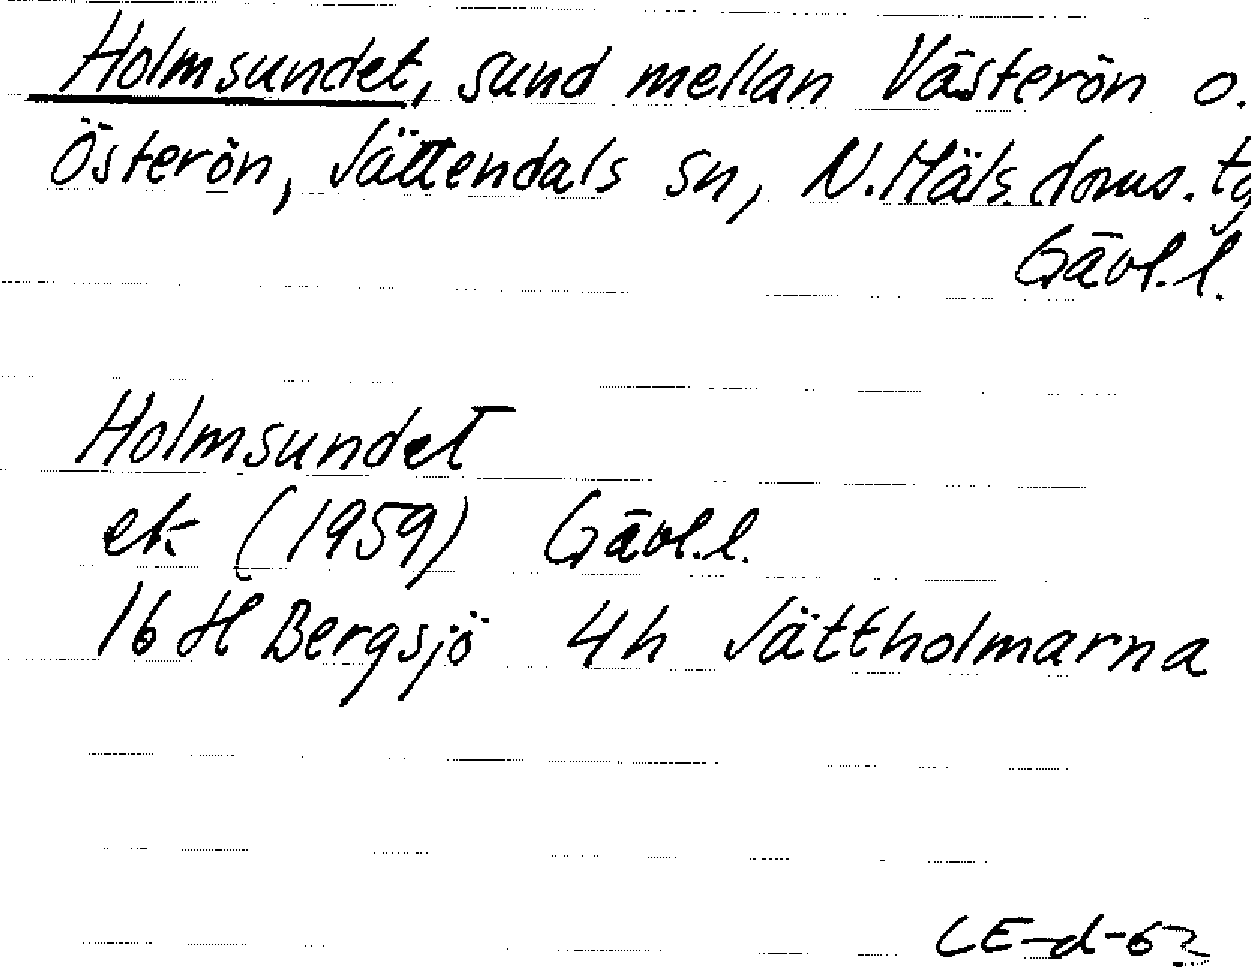 Holmsundet, sund mellan Västerön o.
Österön, Jättendals sn, N. Häls. doms. tg
Gävl. l.
Holmsundet
ek (1959) Gävl. l.
16 H Bergsjö 4h Jättholmarna